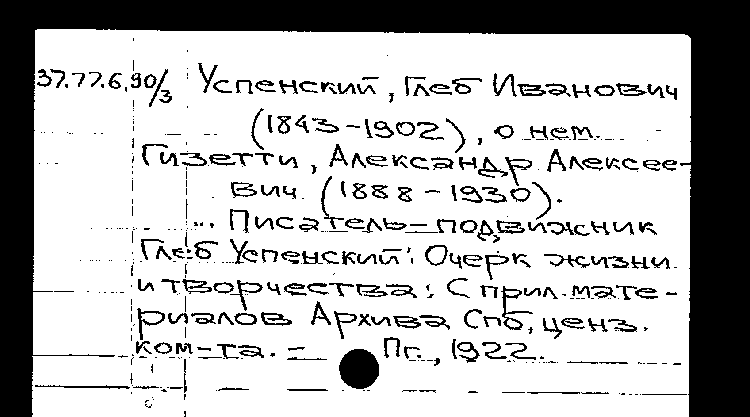 37.77.6.90/3 Успенский, Глеб Иванович
(1843-1902), о нем
Гизетти, Александр Алексее-
вич (1888-1930).
... Писатель-подвижник
Глеб Успенский: Очерк жизни
и творчества: С прил. мате-
риалов Архива Спб, ценз.
ком-та. - Пг., 1922.